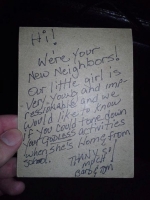 Hi!
We're Your
New Neighbors!
Our little girl is
very young and imp-
ressionable and we
would like to know
if you could tone down
your Godless activities
when she's Home from
school.
Thank so
much!
Barb & Tom